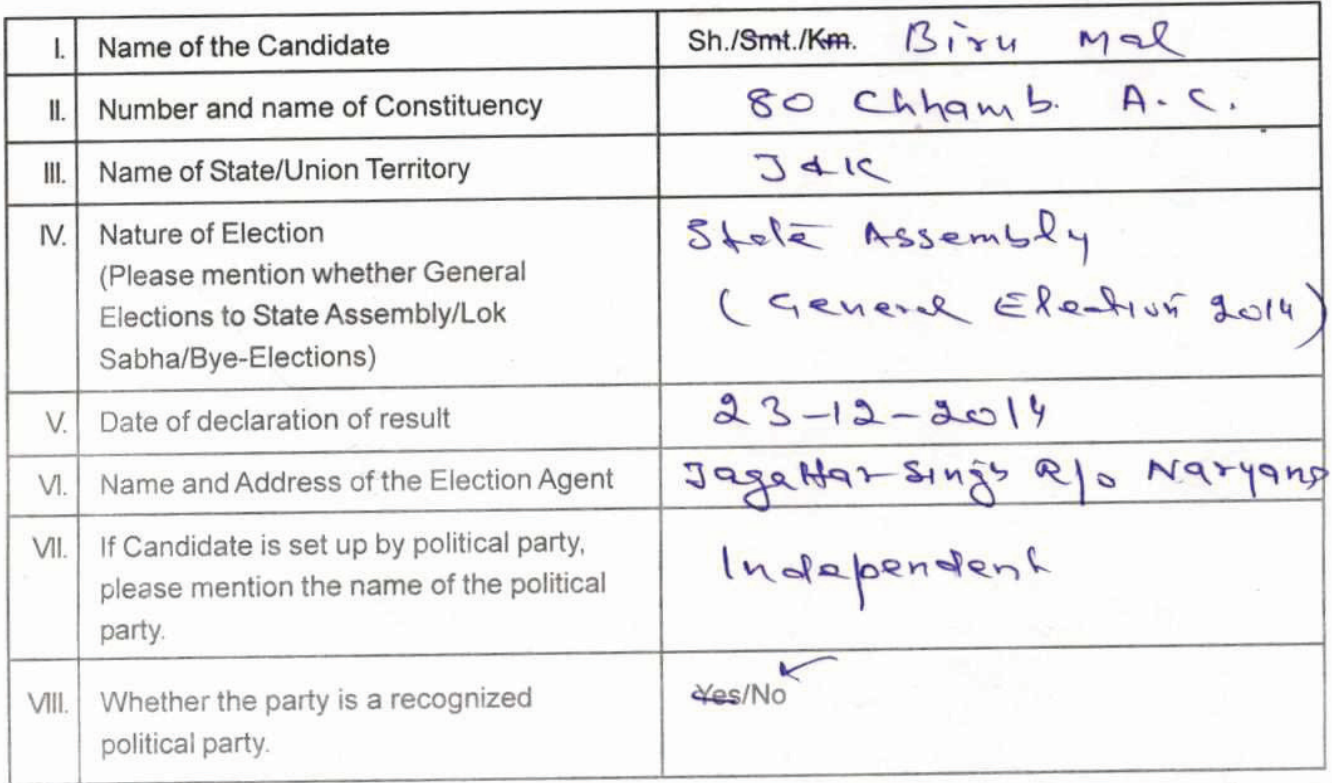 I. Name of the Candidate Sh./Smt./Km. Biru Mal
II. Number and name of Constituency 80 Chhamb. A.C.
III. Name of State/Union Territory J&K
IV. Nature of Election State Assembly
(Please mention whether General
Elections to State Assembly/Lok (General Election 2014)
Sabha/Bye-Elections)
V. Date of declaration of result 23-12-2014
VI. Name and Address of the Election Agent Singh R/o
VII. If Candidate is set up by political party, Independent
please mention the name of the political
party.
VIII. Whether the party is a recognized Yes/No
political party.